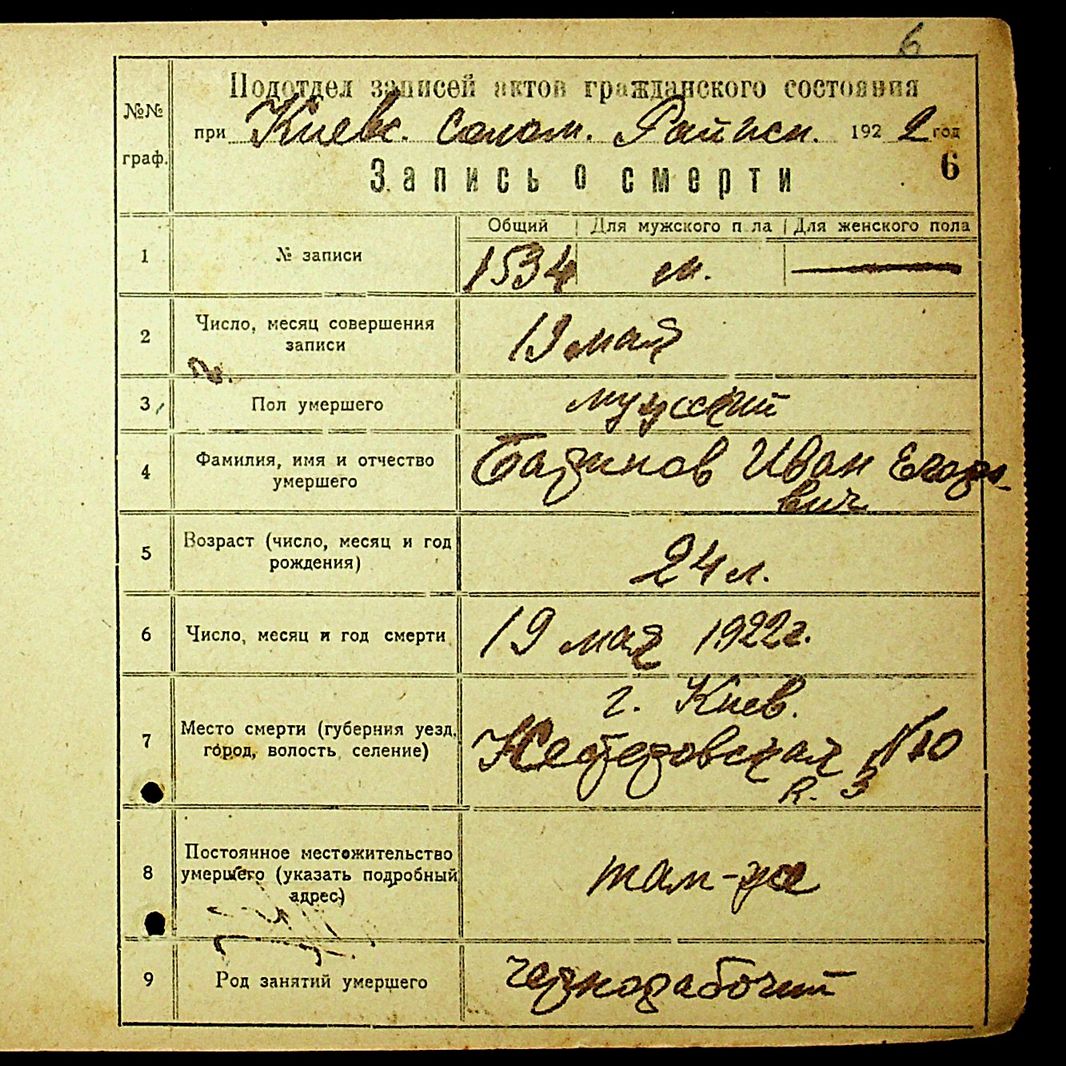 6
Подотдел записей актов гражданского состояния
№№ граф.
при Киевс. Солом. Райисп. 1922 год
6
Запись о смерти
Общий Для мужского пола Для женского пола
1 № записи 1534 м. —
2 Число, месяц совершения записи 19 мая
3 Пол умершего мужский
4 Фамилия, имя и отчество умершего Иван Егоро-
вич
5 Возраст (число, месяц и год рождения) 24 л.
6 Число, месяц и год смерти 19 мая 1922 г.
7 Место смерти (губерния уезд, город, волость, селение) г. Киев.
№ 10
к. 3
8 Постоянное местожительство умершего (указать подробный адрес) там-же
9 Род занятий умершего чернорабочий